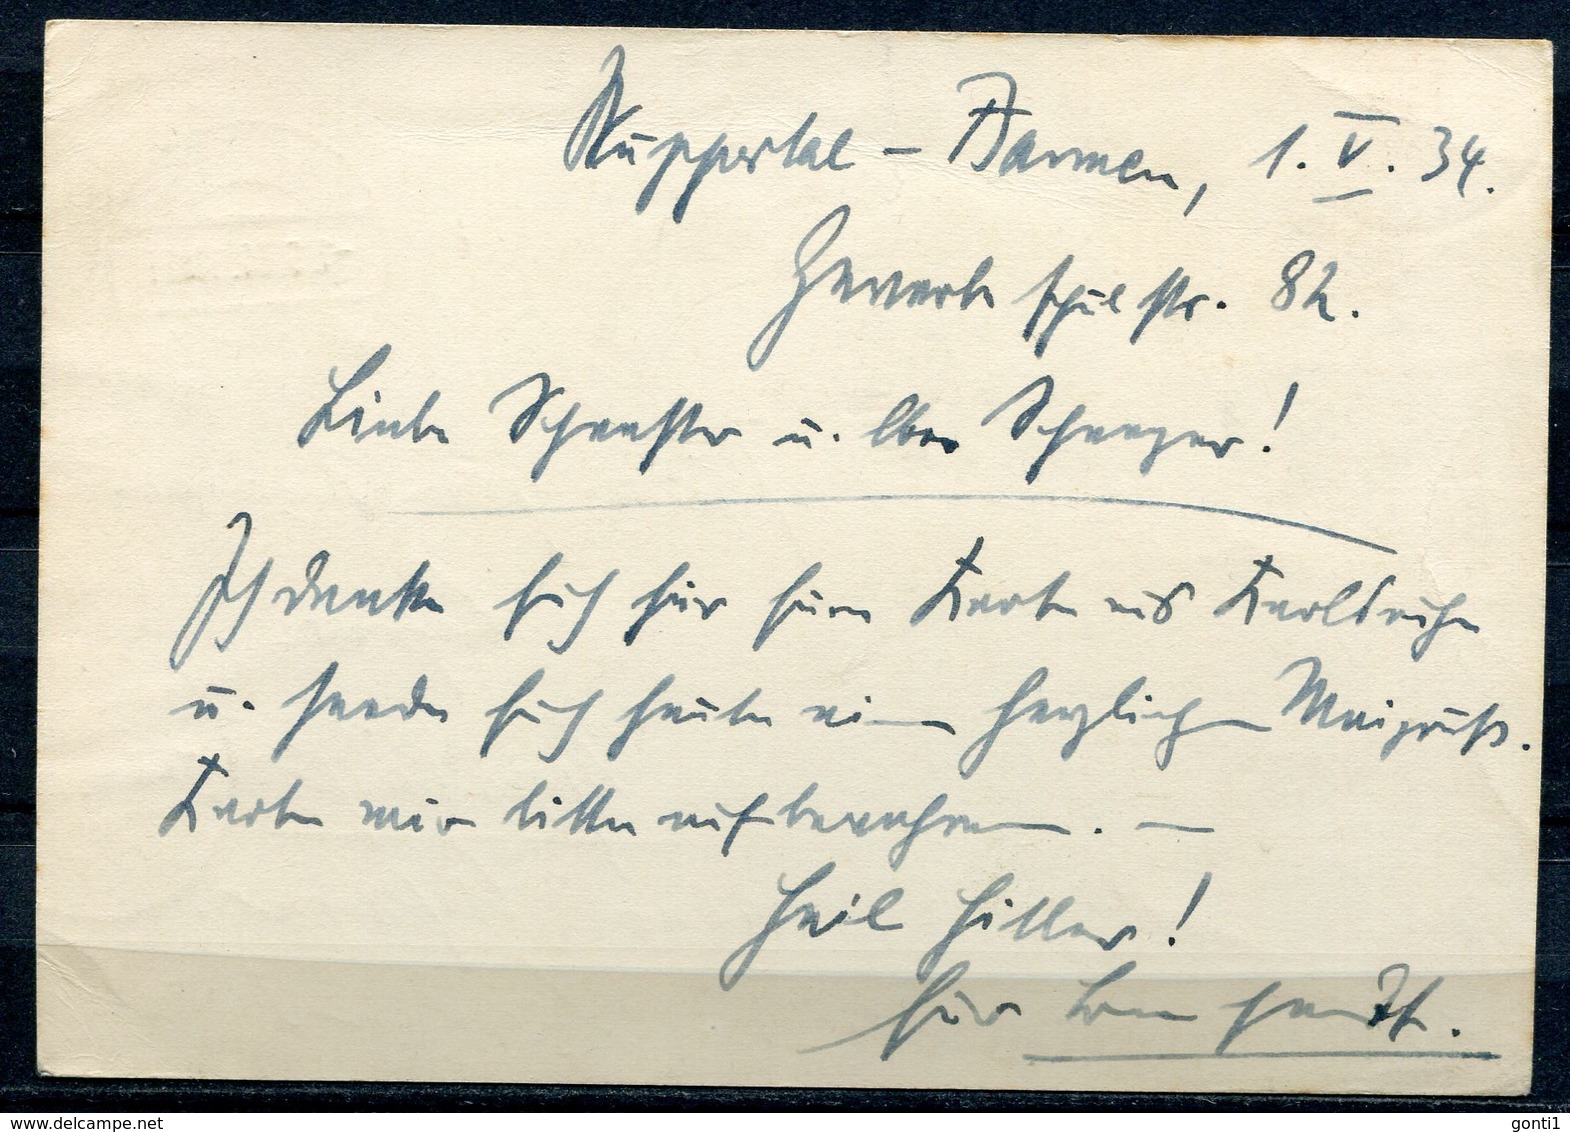 Wuppertal - Barmen, 1. V. 34.
Gewerbeschulstr. 82.
Liebe Schwester u. lber Schwager!
Ich danke Euch für Eure Karte aus Karlsruhe
u. sende Euch heute einen herzlichen Maigruß.
Karte mir bitte aufbewahren. —
Heil Hitler!
Euer
www.delcampe.net
gonti1